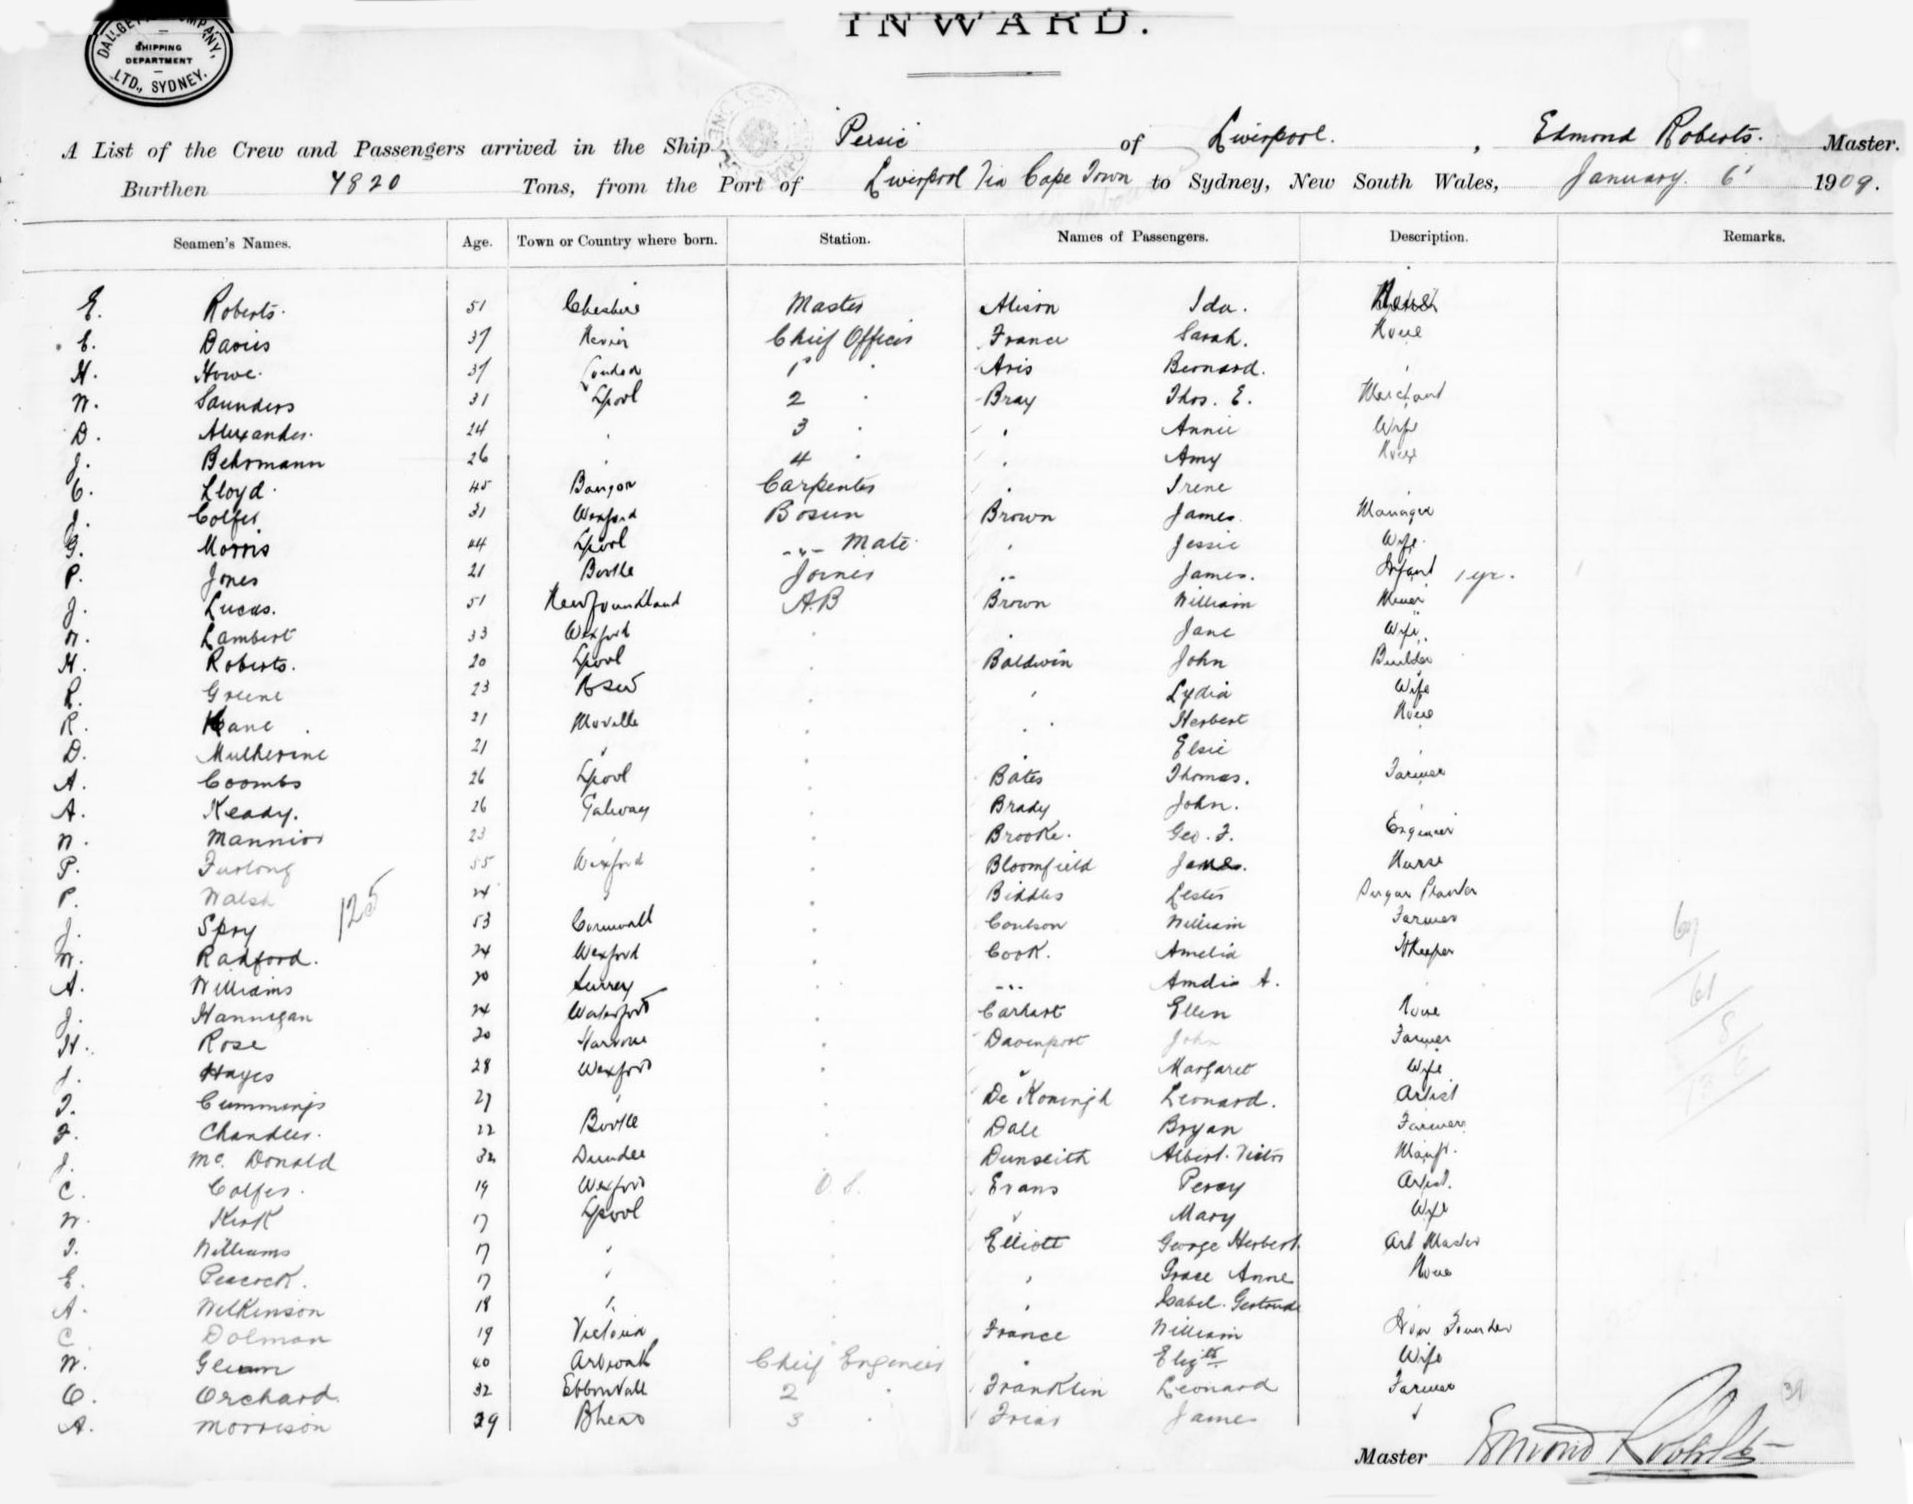 INWARD.
DALGETY & COMPANY, LTD., SYDNEY. SHIPPING DEPARTMENT
A List of the Crew and Passengers arrived in the Ship Persic of Liverpool. , Edmond Roberts. Master.
Burthen 7820 Tons, from the Port of Liverpool Via Cape Town to Sydney, New South Wales, January. 6 1909.
Seamen's Names. Age. Town or Country where born. Station. Names of Passengers. Description. Remarks.
E. Roberts. 51 Cheshire Master Alison Ida.
E. Davies 37 Nevin Chief Officer France Sarah. None
H. Howe. 37 London 1 " Aris Bernard. "
W. Saunders 31 Lpool 2 " Bray Thos. E. Merchant
D. Alexander. 24 " 3 " " Annie Wife
J. Behrmann 26 " 4 " " Amy None
C. Lloyd. 45 Bangor Carpenter " Irene "
J. Colfer 31 Wexford Bosun Brown James. Manager
G. Morris 44 Lpool -"- Mate " Jessie Wife.
P. Jones 21 Bootle Joiner " James. Infant 1 yr.
J. Lucas. 51 Newfoundland A.B Brown William Miner
W. Lambert 33 Wexford " " Jane Wife.
H. Roberts. 20 Lpool " Baldwin John Builder
R. Greene 23 " " Lydia Wife
R. Kane 21 Moville " " Herbert None
D. Mulherine 21 " " " Elsie "
A. Coombs 26 Lpool " Bates Thomas. Farmer
A. Keady. 26 Galway " Brady John. "
W. Mannion 23 " " Brooke. Geo. F. Engineer
P. Furlong 55 Wexford " Bloomfield Nurse
P. Walsh 24 " " Biddles Lester Sugar Planter
125
J. Spry 53 Cornwall " Coulson William Farmer
W. Radford. 24 Wexford " Cook. Amelia
A. Williams 20 Surrey " -"- Amelia A.
J. Hannigan 24 Waterford " Carhart Ellen None
H. Rose 20 " Davenport John Farmer
J. Hayes 28 Wexford " " Margaret Wife
T. Cummings 27 " " De Koningh Leonard. Artist
F. Chandler. 22 Bootle " Dale Bryan Farmer
J. Mc. Donald 32 Dundee " Dunseith Albert. Victor Manfr.
C. Colfer. 19 Wexford O.S. Evans Percy Artist.
W. Kirk 17 Lpool " " Mary Wife
T. Williams 17 " " Elliott George Herbert. Art Master
E. Peacock. 17 " " " Grace Anne None
A. Wilkinson 18 " " " Isabel. Gertrude
C. Dolman 19 Victoria " France William Iron Founder
W. 40 Arbroath Chief Engineer " Elizth Wife
O. Orchard. 32 Ebbw Vale 2 " Franklin Leonard Farmer
A. Morrison 29 B'head 3 " Friar James "
Master Edmond Roberts